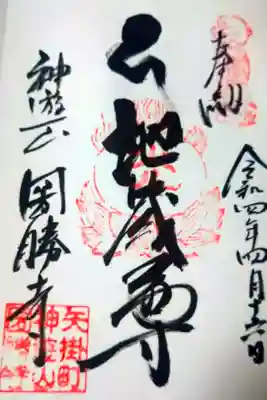 奉納
令和四年四月十六日
地蔵尊
神遊山 圀勝寺
矢掛町
神遊山
圀勝寺